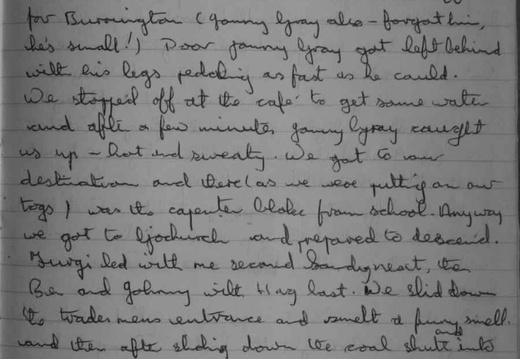 for Burrington (Jonny Gray also - forgot him,
he's small!) Poor Jonny Gray got left behind
with his legs pedaling as fast as he could.
We stopped off at the cafe to get some water
and after a few minutes Jonny Gray caught
us up - hot and sweaty. We got to our
destination and there (as we were putting on our
togs) was the carpenter bloke from school. Anyway
we got to and prepared to descend.
led with me second next, then
Ben and Johnny with last. We slid down
the tradesmens entrance and smelt a funny smell.
and then after sliding down the coal shute into